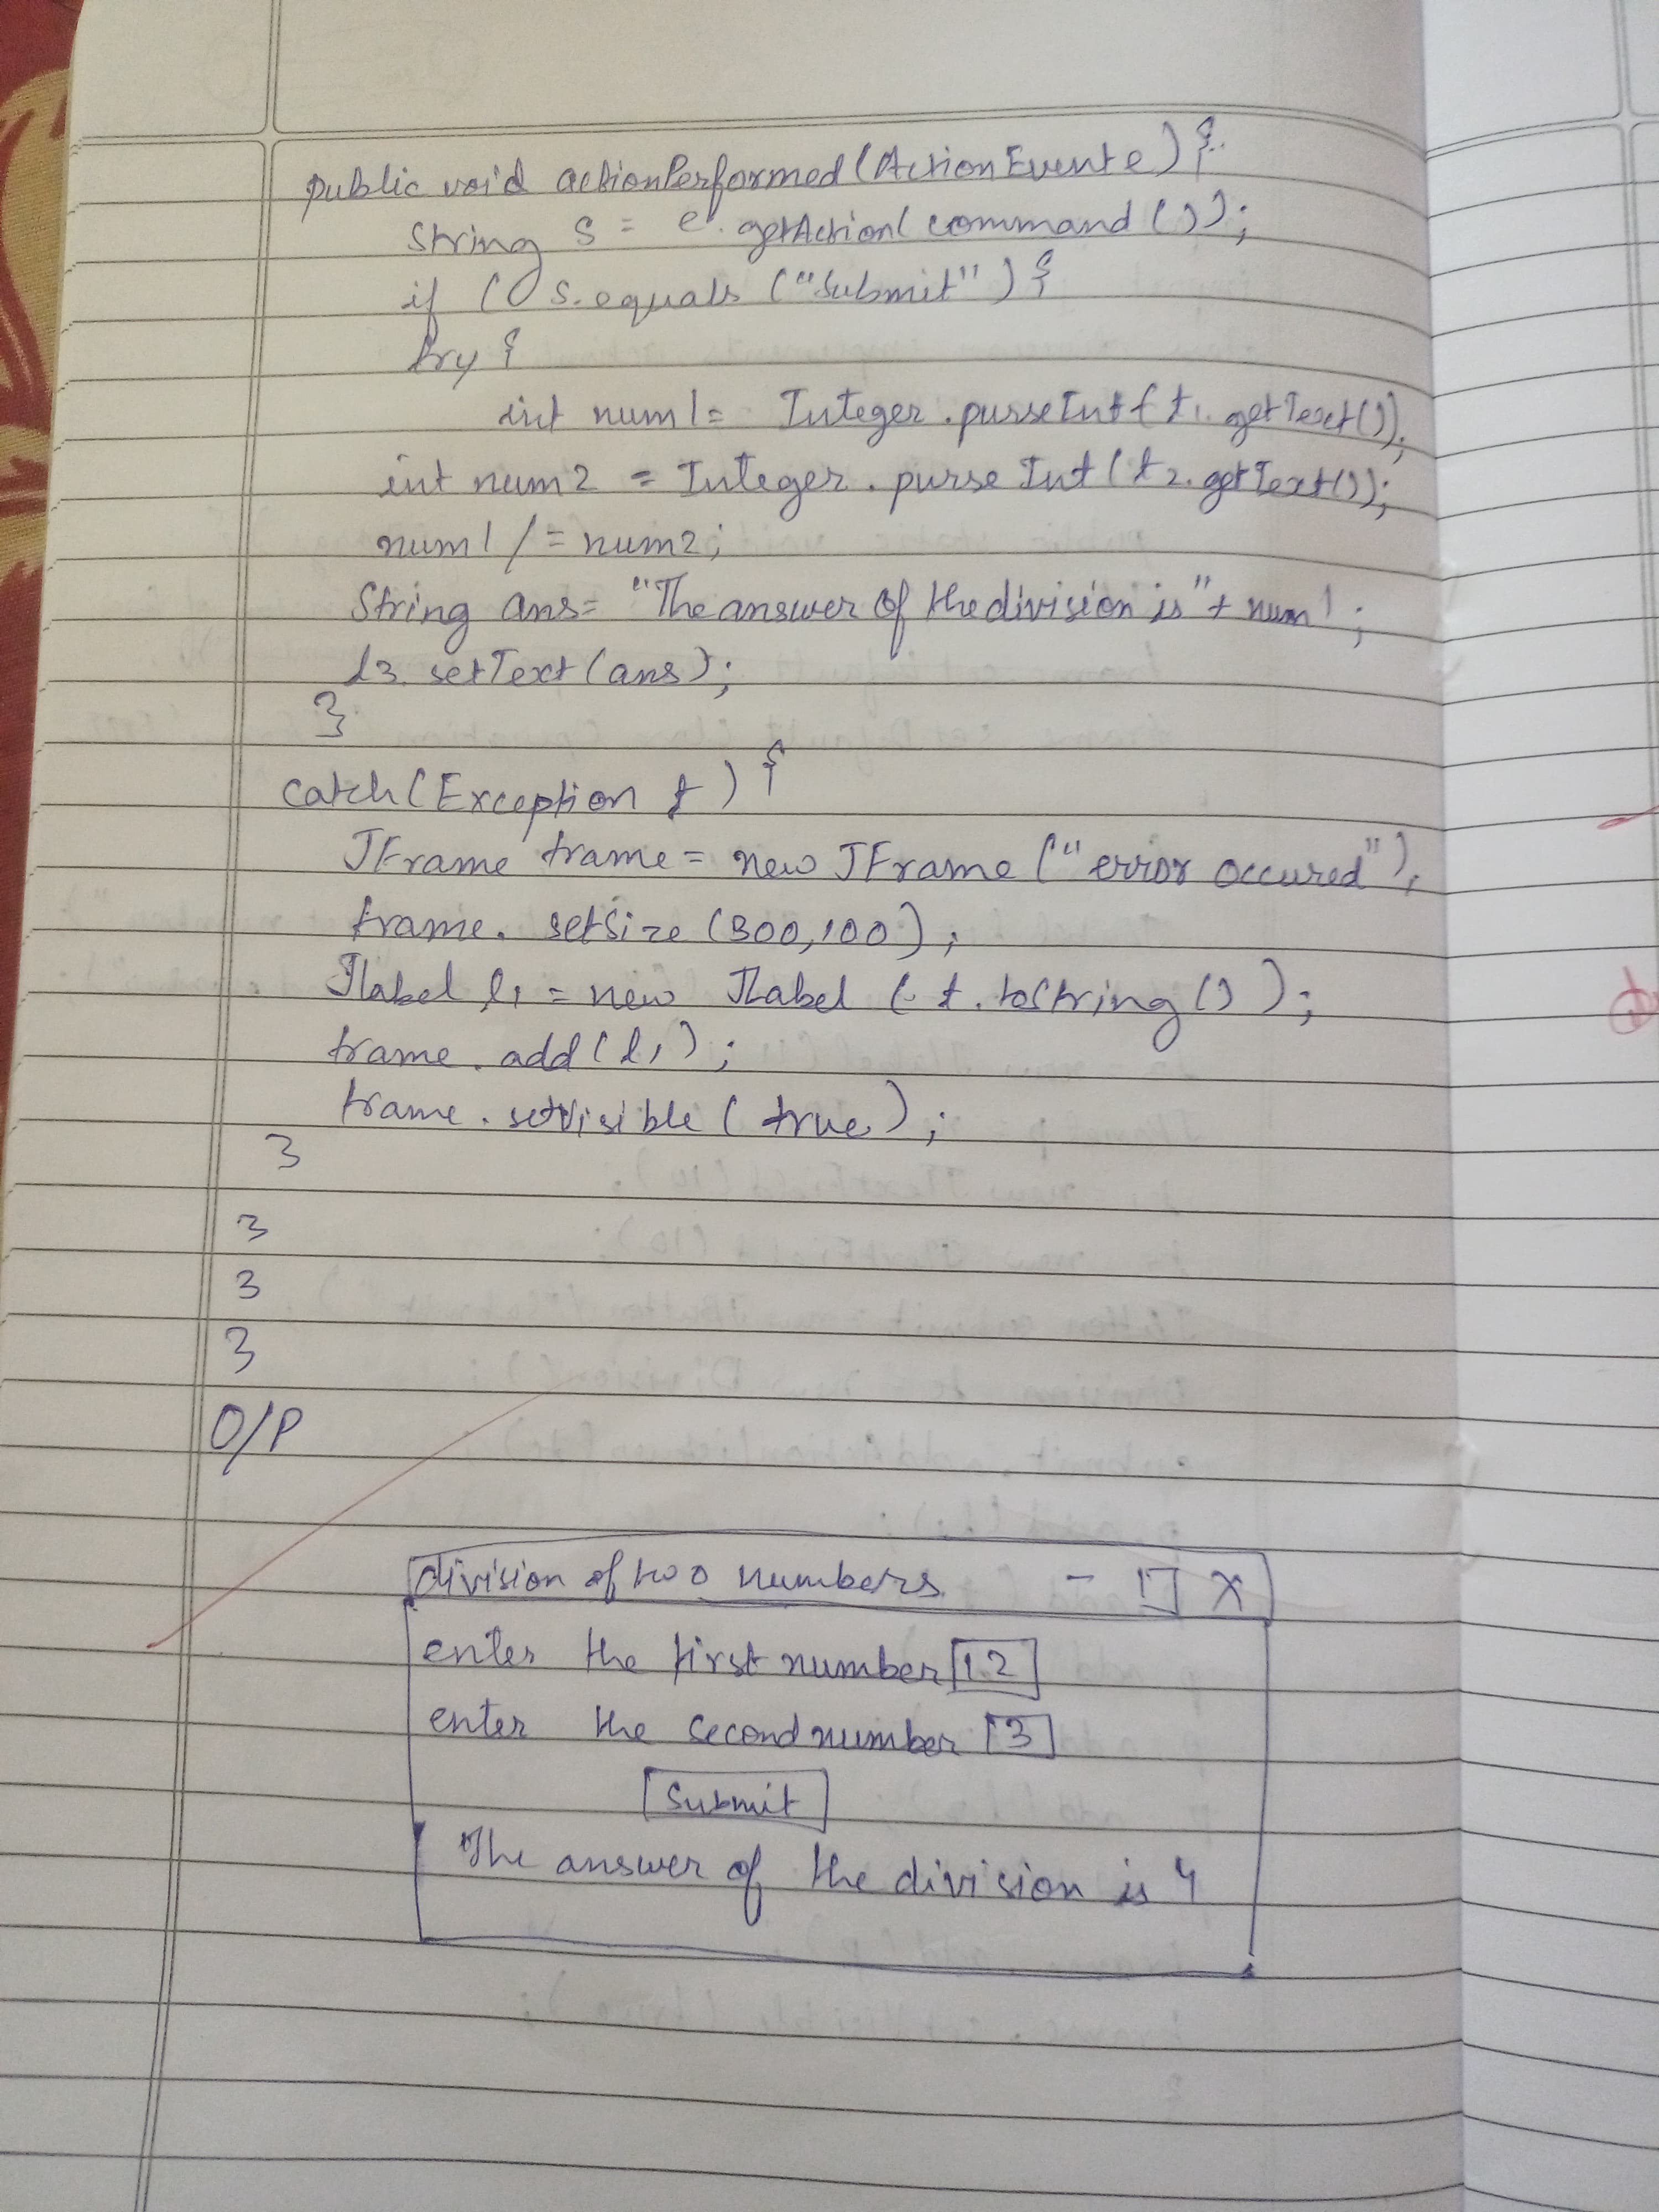 public void actionPerformed(ActionEvent e) {
String s = e.getAction( command ());
if ( s.equals ("Submit") {
try {
int num1= Integer.purseInt( t1.getText());
int num2 = Integer.purse Int(t2.getText());
num1 /= num2;
String ans= "The answer of the division is"+ num1;
l3.setText(ans);
}
catch(Exception f) {
JFrame frame = new JFrame ("error occured");
frame. setsize (300,100);
Jlabel l1 = new JLabel ( f.toString () );
frame.add(l1);
frame.setVisible( true);
}
}
}
}
O/P
division of two numbers - □ X
enter the first number 12
enter the second number 3
Submit
The answer of the division is 4